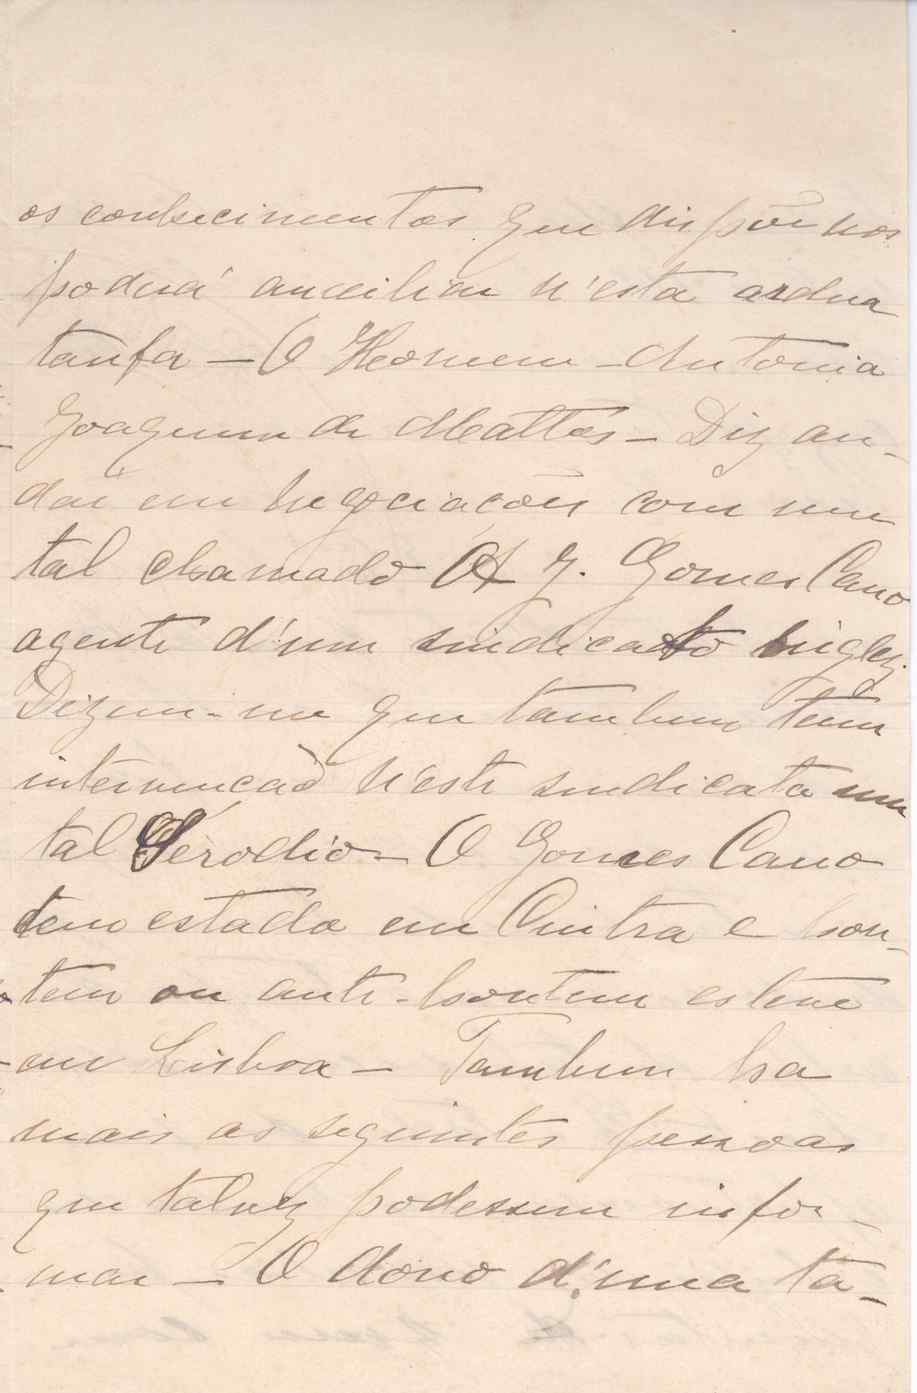 os conhecimentos que dispõe nos
poderá auxiliar n'esta ardua
tarefa — O Homem — Antonio
Joaquim de Mattos — Diz an-
dar em negociacões com um
tal chamado A J. Gomes Cano
agente d'um sindicato inglez
Dizem-me que tambem tem
intervencaõ n'este sindicato um
tal Seródio — O Gomes Cano
tem estado em Cintra e hon-
tem ou ante-hontem esteve
em Lisboa — Tambem ha
mais as seguintes pessoas
que talvez podessem infor-
mar — O dono d'uma ta-